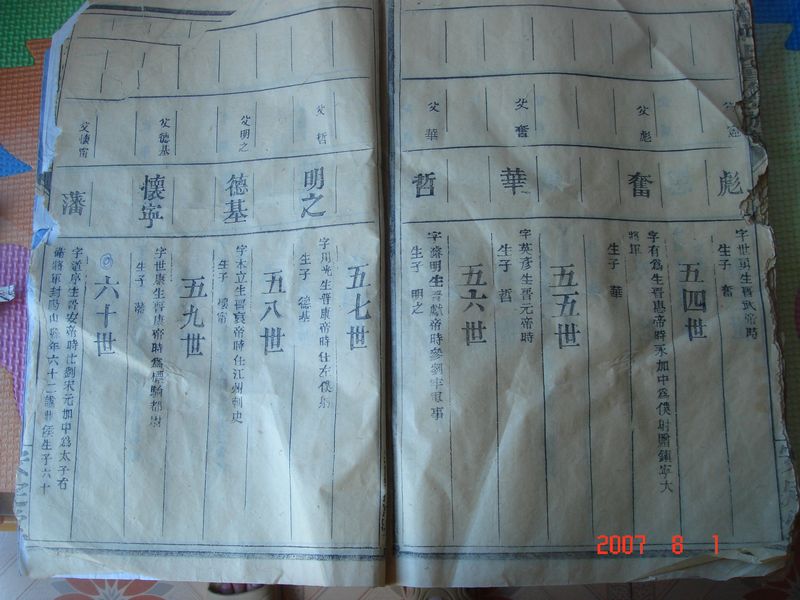 彪
字世
生晋武帝時
生子 奮
五四世
父彪
奮
字有為生晋惠帝時永加中為僕射
鎮寧大
將軍
生子 華
五五世
父奮
華
字英彦生晋元帝時
生子 哲
五六世
父華
哲
明生晋
帝時參劉牢軍事
生子 明之
五七世
父哲
明之
光生晋康帝時仕左僕射
生子 德基
五八世
父明之
德基
字木立生晋哀帝時任江州刺史
生子 懷甯
五九世
父德基
懷寧
字世康生晋
帝時為
騎都尉
生子 藩
六十世
父懷甯
藩
字道序生晋安帝時仕劉宋元加中為太子右
將軍封
山
年六十二歲
生子六十
2007 8 1